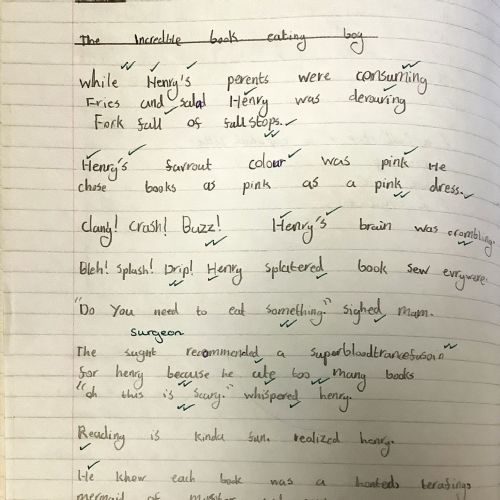 The Incredible book eating boy
while Henry's perents were consuming
Fries and salad Henry was derouring
Fork full of fullstops.
Henry's favrout colour was pink He
chose books as pink as a pink dress.
Clang! Crash! Buzz! Henry's brain was crombling.
Bleh! Splash! Drip! Henry splatered book sew evryware.
"Do You need to eat something." sighed mam.
Surgeon
The sught recommended a superbloodtrancefusoin
for henry because he ate too many books
"oh this is scary." whispered henry.
Reading is kinda fun. realized henry.
He knew each book was a
mermaid of